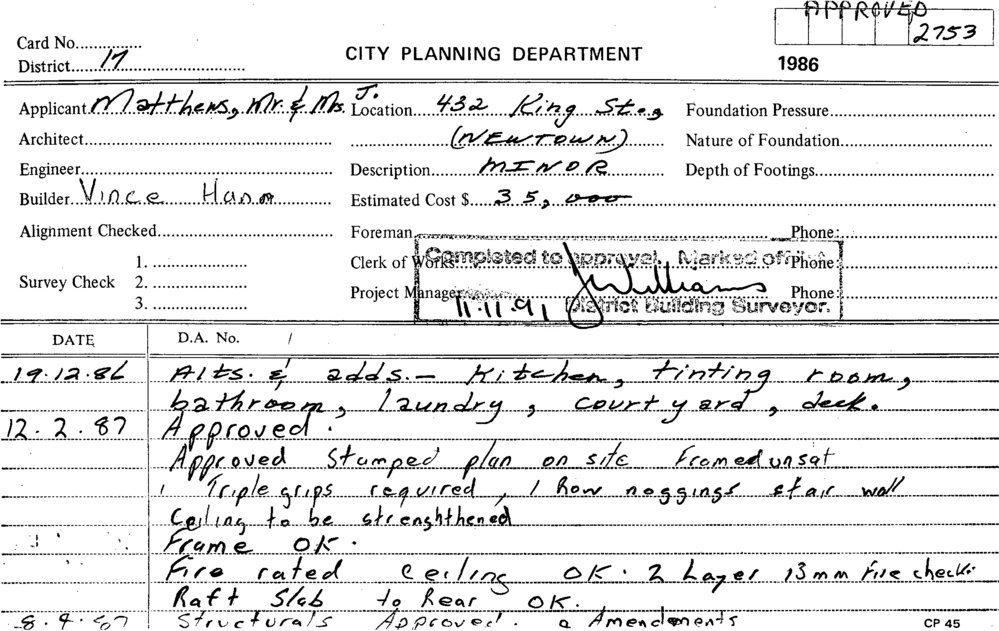 APPROVED
2753
Card No.
District 17
CITY PLANNING DEPARTMENT
1986
Applicant Matthews, Mr. & Mrs. J. Location 432 King St.
Foundation Pressure
Architect (NEWTOWN) Nature of Foundation
Engineer Description MINOR Depth of Footings
Builder Vince Estimated Cost $ 35,000
Alignment Checked Foreman Phone:
Survey Check 1. Clerk of Works Phone:
2.
3. Project Manager Phone:
Completed to approval. Marked off
J Williams
11.11.91 District Building Surveyor.
DATE D.A. No.
19.12.86 Alts. & adds. - Kitchen, tinting room,
bathroom, laundry, courtyard, deck.
12.2.87 Approved.
Approved Stamped plan on site Framed unsat
1 Triple grips required, 1 Row noggings stair wall
Ceiling to be strenghthened
Frame OK.
Fire rated ceiling OK. 2 Layer 13mm fire check.
Raft Slab to Rear OK.
Structurals Approved. a Amendments
CP 45